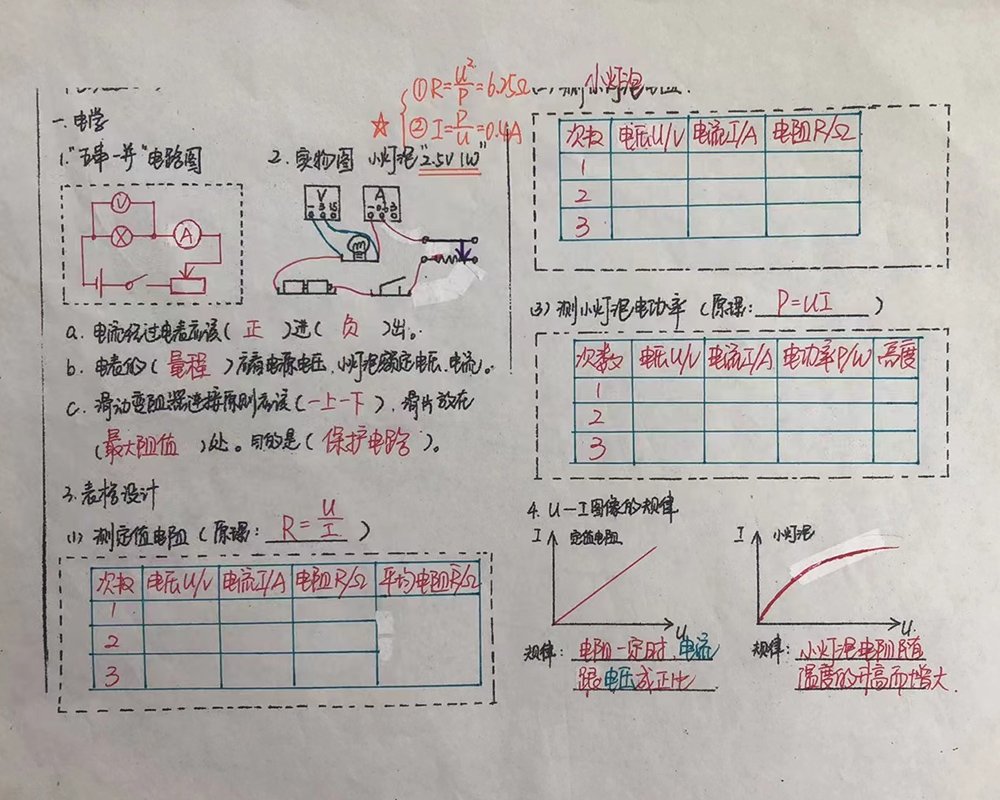 ① R=U²/P=6.25Ω
☆ ② I=P/U=0.4A
一.电学
1."五串一并"电路图
V
A
2.实物图 小灯泡"2.5V 1W"
V
- 3 15
A
- 0.6 3
a. 电流经过电表应该(正)进(负)出。
b. 电表的(量程)应看电源电压、小灯泡额定电压、电流。
c. 滑动变阻器连接原则应该(一上一下),滑片放在
(最大阻值)处。目的是(保护电路)。
3.表格设计
(1) 测定值电阻(原理: R=U/I )
次数 电压U/V 电流I/A 电阻R/Ω 平均电阻R/Ω
1
2
3
小灯泡
次数 电压U/V 电流I/A 电阻R/Ω
1
2
3
(3) 测小灯泡电功率(原理: P=UI )
次数 电压U/V 电流I/A 电功率P/W 亮度
1
2
3
4. U-I图像的规律
I 定值电阻
U
规律: 电阻一定时,电流
跟电压成正比
I 小灯泡
U
规律: 小灯泡电阻随
温度的升高而增大.